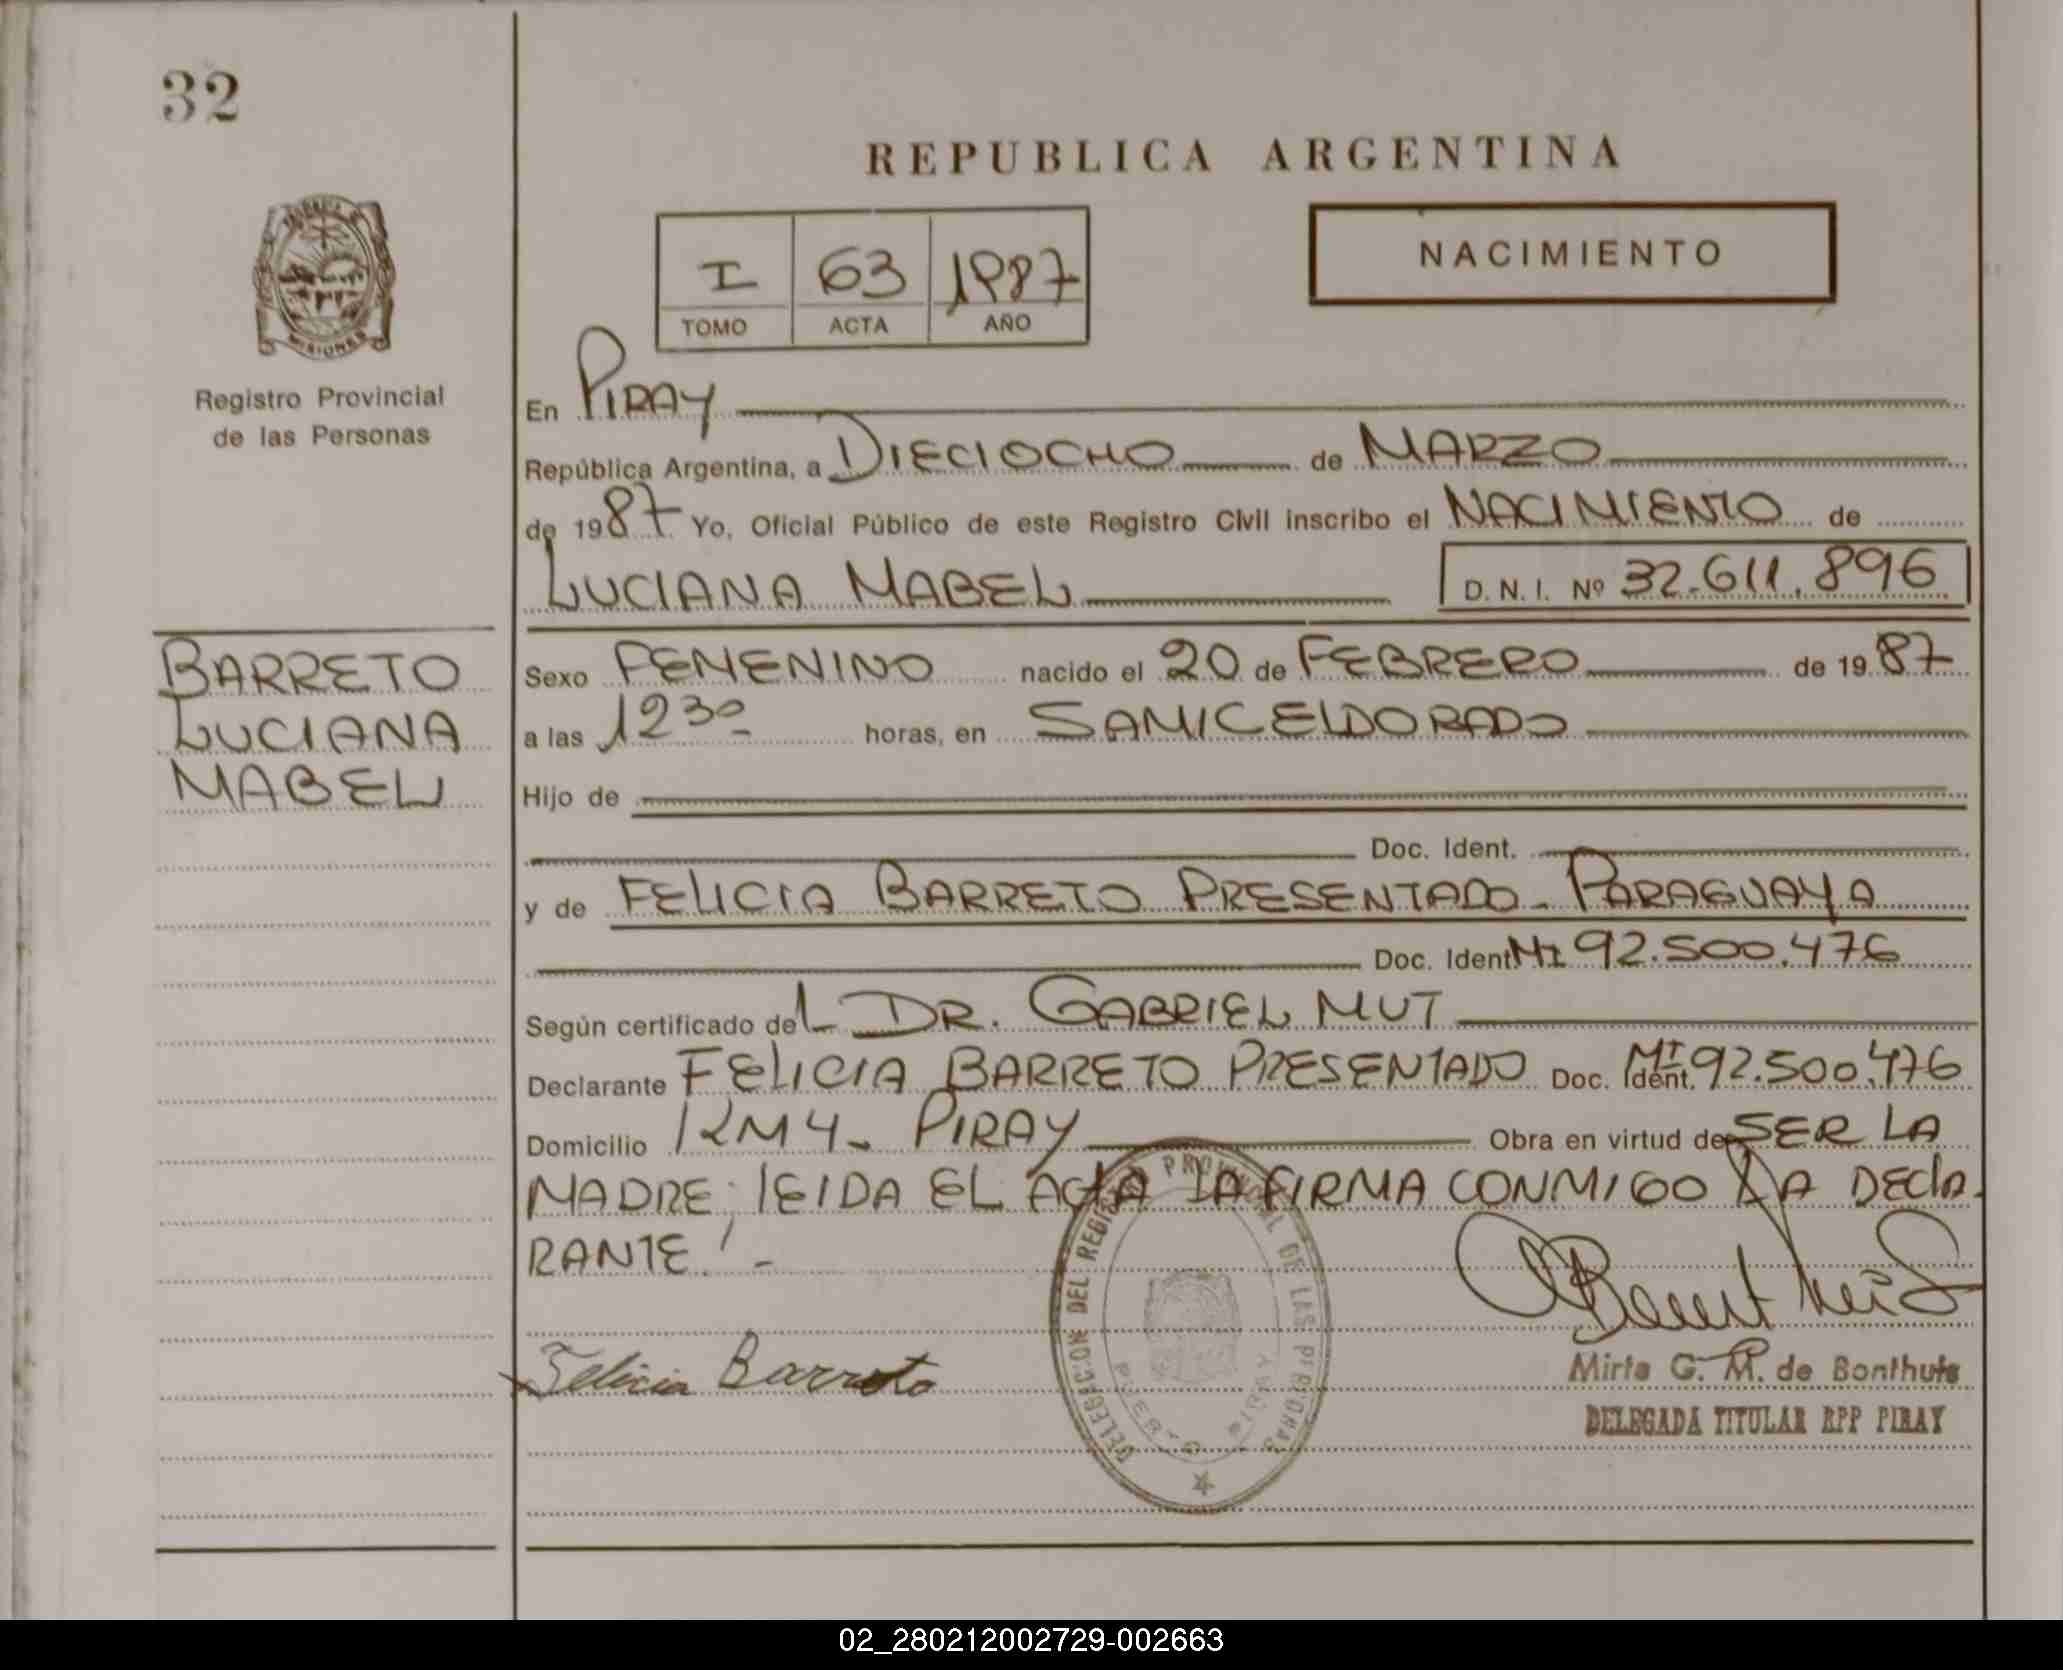 32
REPUBLICA ARGENTINA
NACIMIENTO
I 63 1987
TOMO ACTA AÑO
MISIONES
Registro Provincial
de las Personas
En PIRAY
República Argentina, a DIECIOCHO de MARZO
de 1987 Yo, Oficial Público de este Registro Civil inscribo el NACIMIENTO de
LUCIANA MABEL D. N. I. Nº 32.611.896
BARRETO
LUCIANA
MABEL
Sexo FEMENINO nacido el 20 de FEBRERO de 1987
a las 12 30 horas, en SAMICELDORADO
Hijo de
Doc. Ident.
y de FELICIA BARRETO PRESENTADO - PARAGUAYA
Doc. Ident MI 92.500.476
Según certificado del DR. GABRIEL MUT
Declarante FELICIA BARRETO PRESENTADO Doc. Ident. MI 92.500.476
Domicilio KM 4 - PIRAY Obra en virtud de SER LA
MADRE; LEIDA EL ACTA LA FIRMA CONMIGO LA DECLA-
RANTE! -
Felicia Barreto
DELEGACION DEL REGISTRO PROVINCIAL DE LAS PERSONAS
PUERTO PIRAY
Mirta G. M. de Bonthuis
DELEGADA TITULAR RPP PIRAY
02_280212002729-002663